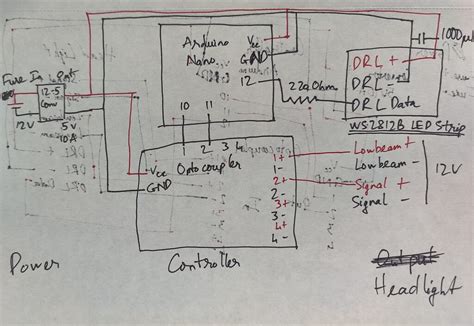 Arduino
Nano
Vcc
GND
12
10
11
220ohm
1000µf
DRL +
DRL -
DRL Data
WS2812B LED Strip
Fuse In Port
12-5
Conv
12V
5V
10A
1 2 3 4
Optocoupler
Vcc
GND
1+
1-
2+
2-
3+
3-
4+
4-
Lowbeam +
Lowbeam -
Signal +
Signal -
12V
Power
Controller
Output
Headlight